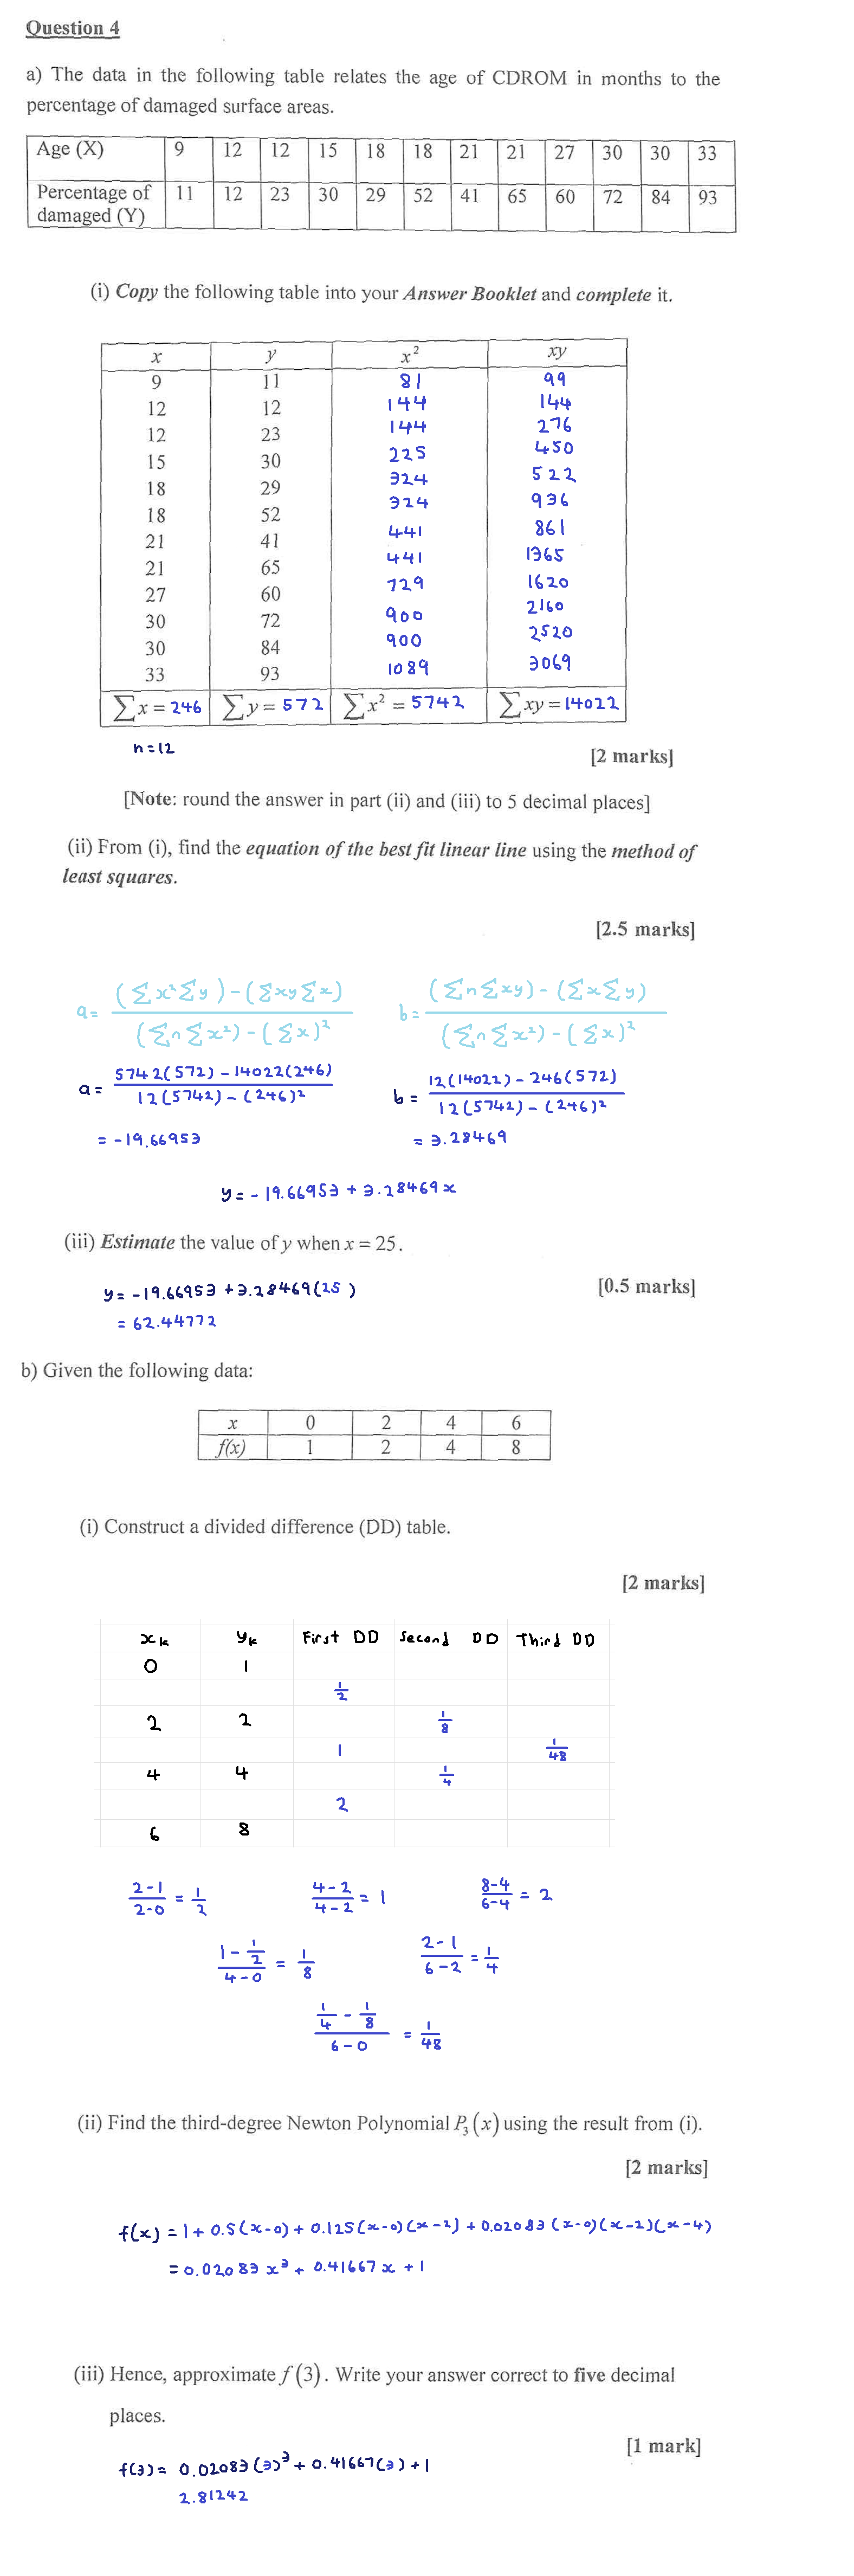 Question 4
a) The data in the following table relates the age of CDROM in months to the
percentage of damaged surface areas.
Age (X) 9 12 12 15 18 18 21 21 27 30 30 33
Percentage of damaged (Y) 11 12 23 30 29 52 41 65 60 72 84 93
(i) Copy the following table into your Answer Booklet and complete it.
x y x² xy
9 11 81 99
12 12 144 144
12 23 144 276
15 30 225 450
18 29 324 522
18 52 324 936
21 41 441 861
21 65 441 1365
27 60 729 1620
30 72 900 2160
30 84 900 2520
33 93 1089 3069
∑x = 246 ∑y = 572 ∑x² = 5742 ∑xy = 14022
n=12
[2 marks]
[Note: round the answer in part (ii) and (iii) to 5 decimal places]
(ii) From (i), find the equation of the best fit linear line using the method of
least squares.
[2.5 marks]
a = ((∑x²∑y) - (∑xy∑x)) / ((∑n∑x²) - (∑x)²) b = ((∑n∑xy) - (∑x∑y)) / ((∑n∑x²) - (∑x)²)
a = (5742(572) - 14022(246)) / (12(5742) - (246)²) b = (12(14022) - 246(572)) / (12(5742) - (246)²)
= -19.66953 = 3.28469
y = -19.66953 + 3.28469x
(iii) Estimate the value of y when x = 25.
[0.5 marks]
y = -19.66953 + 3.28469(25)
= 62.44772
b) Given the following data:
x 0 2 4 6
f(x) 1 2 4 8
(i) Construct a divided difference (DD) table.
[2 marks]
xₖ yₖ First DD Second DD Third DD
0 1
1/2
2 2 1/8
1 1/48
4 4 1/4
2
6 8
(2-1)/(2-0) = 1/2 (4-2)/(4-2) = 1 (8-4)/(6-4) = 2
(1 - 1/2)/(4-0) = 1/8 (2-1)/(6-2) = 1/4
(1/4 - 1/8)/(6-0) = 1/48
(ii) Find the third-degree Newton Polynomial P₃(x) using the result from (i).
[2 marks]
f(x) = 1 + 0.5(x-0) + 0.125(x-0)(x-2) + 0.02083(x-0)(x-2)(x-4)
= 0.02083x³ + 0.41667x + 1
(iii) Hence, approximate f(3). Write your answer correct to five decimal
places.
[1 mark]
f(3) = 0.02083(3)³ + 0.41667(3) + 1
2.81242